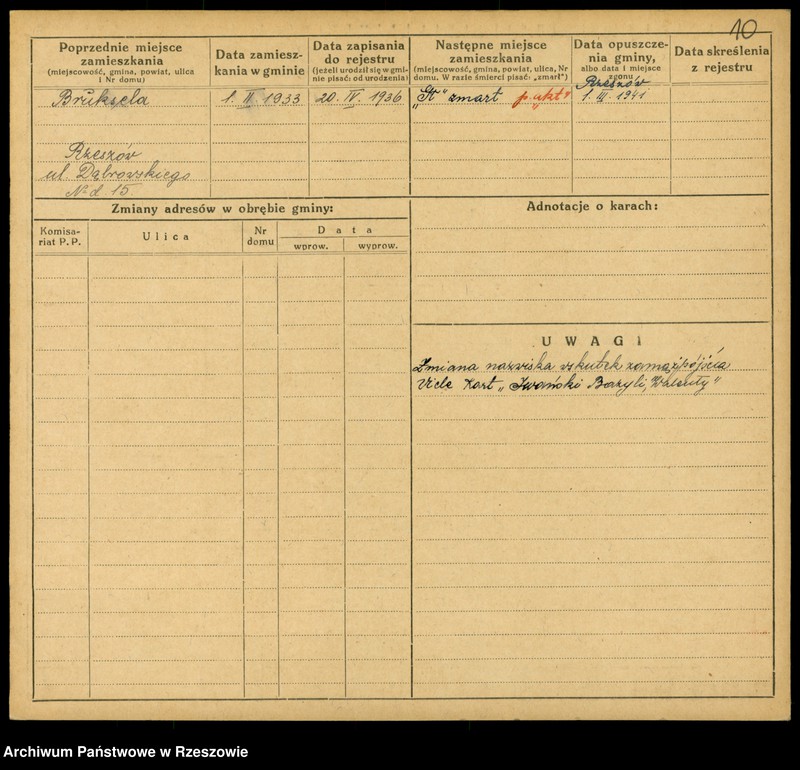 10
Poprzednie miejsce
zamieszkania
(miejscowość, gmina, powiat, ulica
i Nr domu)
Data zamiesz-
kania w gminie
Data zapisania
do rejestru
(jeżeli urodził się w gmi-
nie pisać: od urodzenia)
Następne miejsce
zamieszkania
(miejscowość, gmina, powiat, ulica, Nr
domu. W razie śmierci pisać: „zmarł")
Data opuszcze-
nia gminy,
albo data i miejsce
zgonu
Data skreślenia
z rejestru
Bruksela
1. II. 1933
20. IV. 1936
zmarł
Rzeszów
1. III. 1941
Rzeszów
ul Dąbrowskiego
N-d. 15
Zmiany adresów w obrębie gminy:
Komisa-
riat P. P.
Ulica
Nr
domu
Data
wprow.
wyprow.
Adnotacje o karach:
UWAGI
Zmiana nazwiska wskutek zamążpójścia
Vide kart „Iwański Bazyli,
Archiwum Państwowe w Rzeszowie